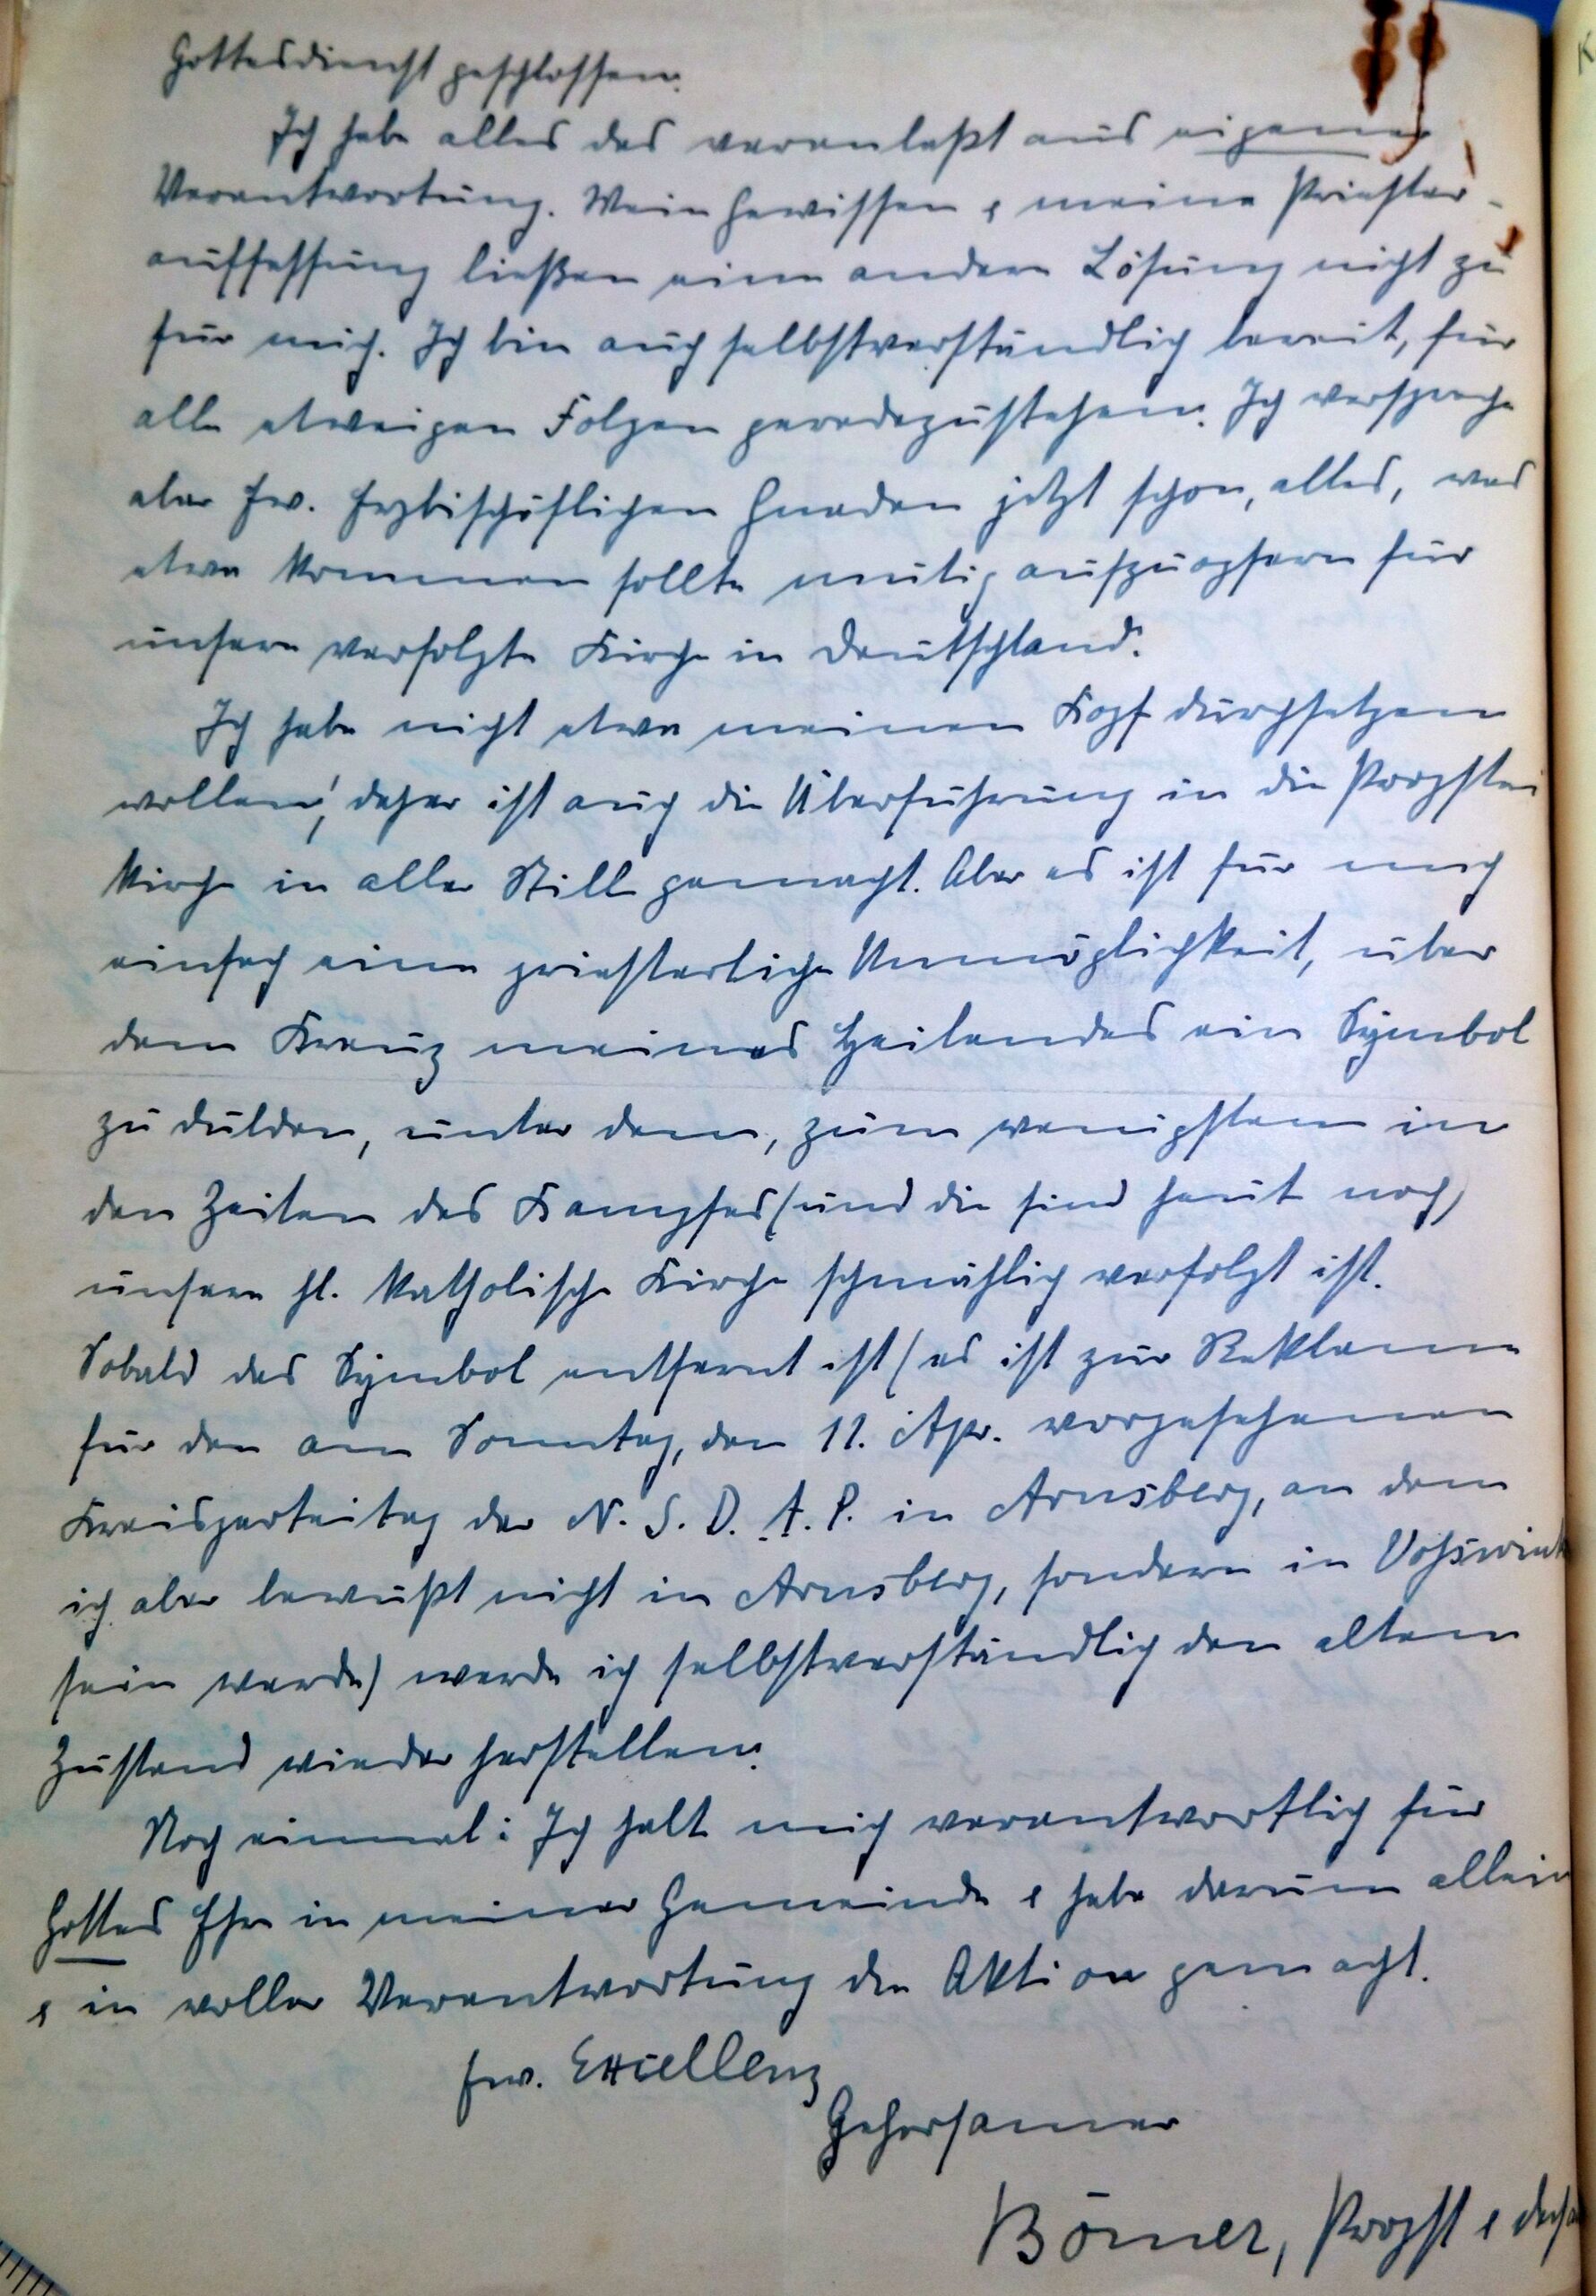 Gottesdienst geschlossen.
Ich habe alles das veranlaßt aus eigener
Verantwortung. Mein Gewissen & meine Priester-
auffassung ließen eine andere Lösung nicht zu
für mich. Ich bin auch selbstverständlich bereit, für
alle etwaigen Folgen geradezustehen. Ich verspreche
aber Ew. Erzbischöflichen Gnaden jetzt schon, alles, was
etwa kommen sollte mutig aufzuopfern für
unsere verfolgte Kirche in Deutschland.
Ich habe nicht etwa meinen Kopf durchsetzen
wollen, daher ist auch die Überführung in die Propstei
kirche in aller Stille gemacht. Aber es ist für mich
einfach eine priesterliche Unmöglichkeit, über
dem Kreuz meines Heilandes ein Symbol
zu dulden, unter dem, zum wenigsten in
den Zeiten des Kampfes (und die sind heute noch)
unsere hl. katholische Kirche schmählich verfolgt ist.
Sobald das Symbol entfernt ist (es ist zur Reklame
für den am Sonntag, den 11. Apr. vorgesehenen
Kreisparteitag der N. S. D. A. P. in Arnsberg, an dem
ich aber bewußt nicht in Arnsberg, sondern in Vosswink
sein werde) werde ich selbstverständlich den alten
Zustand wieder herstellen.
Noch einmal: Ich halte mich verantwortlich für
Gottes Ehre in meiner Gemeinde & habe darum allein
& in voller Verantwortung die Aktion gemacht.
Ew. Excellenz
Gehorsamer
Bömer, Propst &